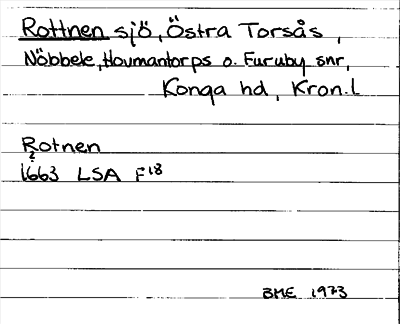 Rottnen sjö, Östra Torsås,
Nöbbele, Hovmantorps o. Furuby snr,
Konga hd, Kron.l
Rotnen
1663 LSA F18
BME 1973